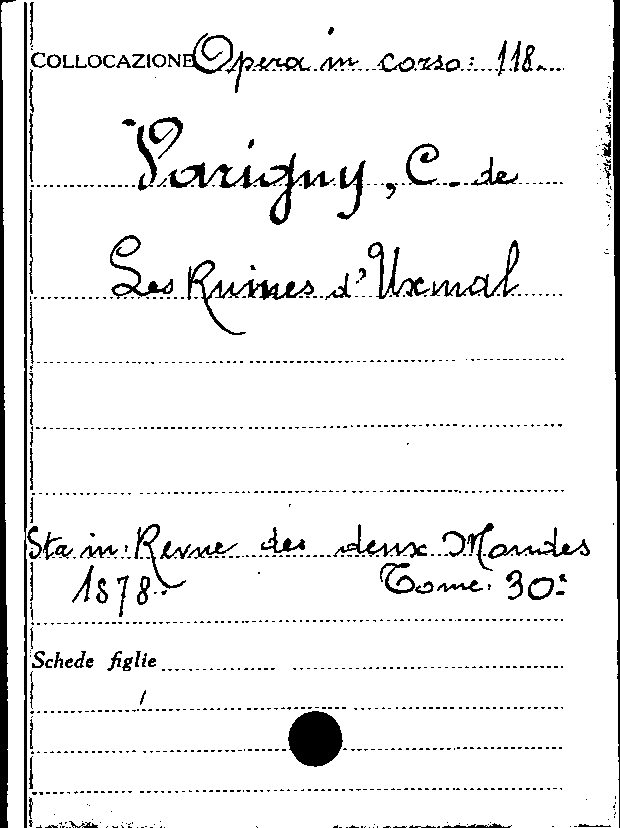 COLLOCAZIONE Opera in corso: 118.
Varigny, C. de
Les Ruines d'Uxmal
Sta in: Revue des deux Mondes
1878. Tome: 30º
Schede figlie